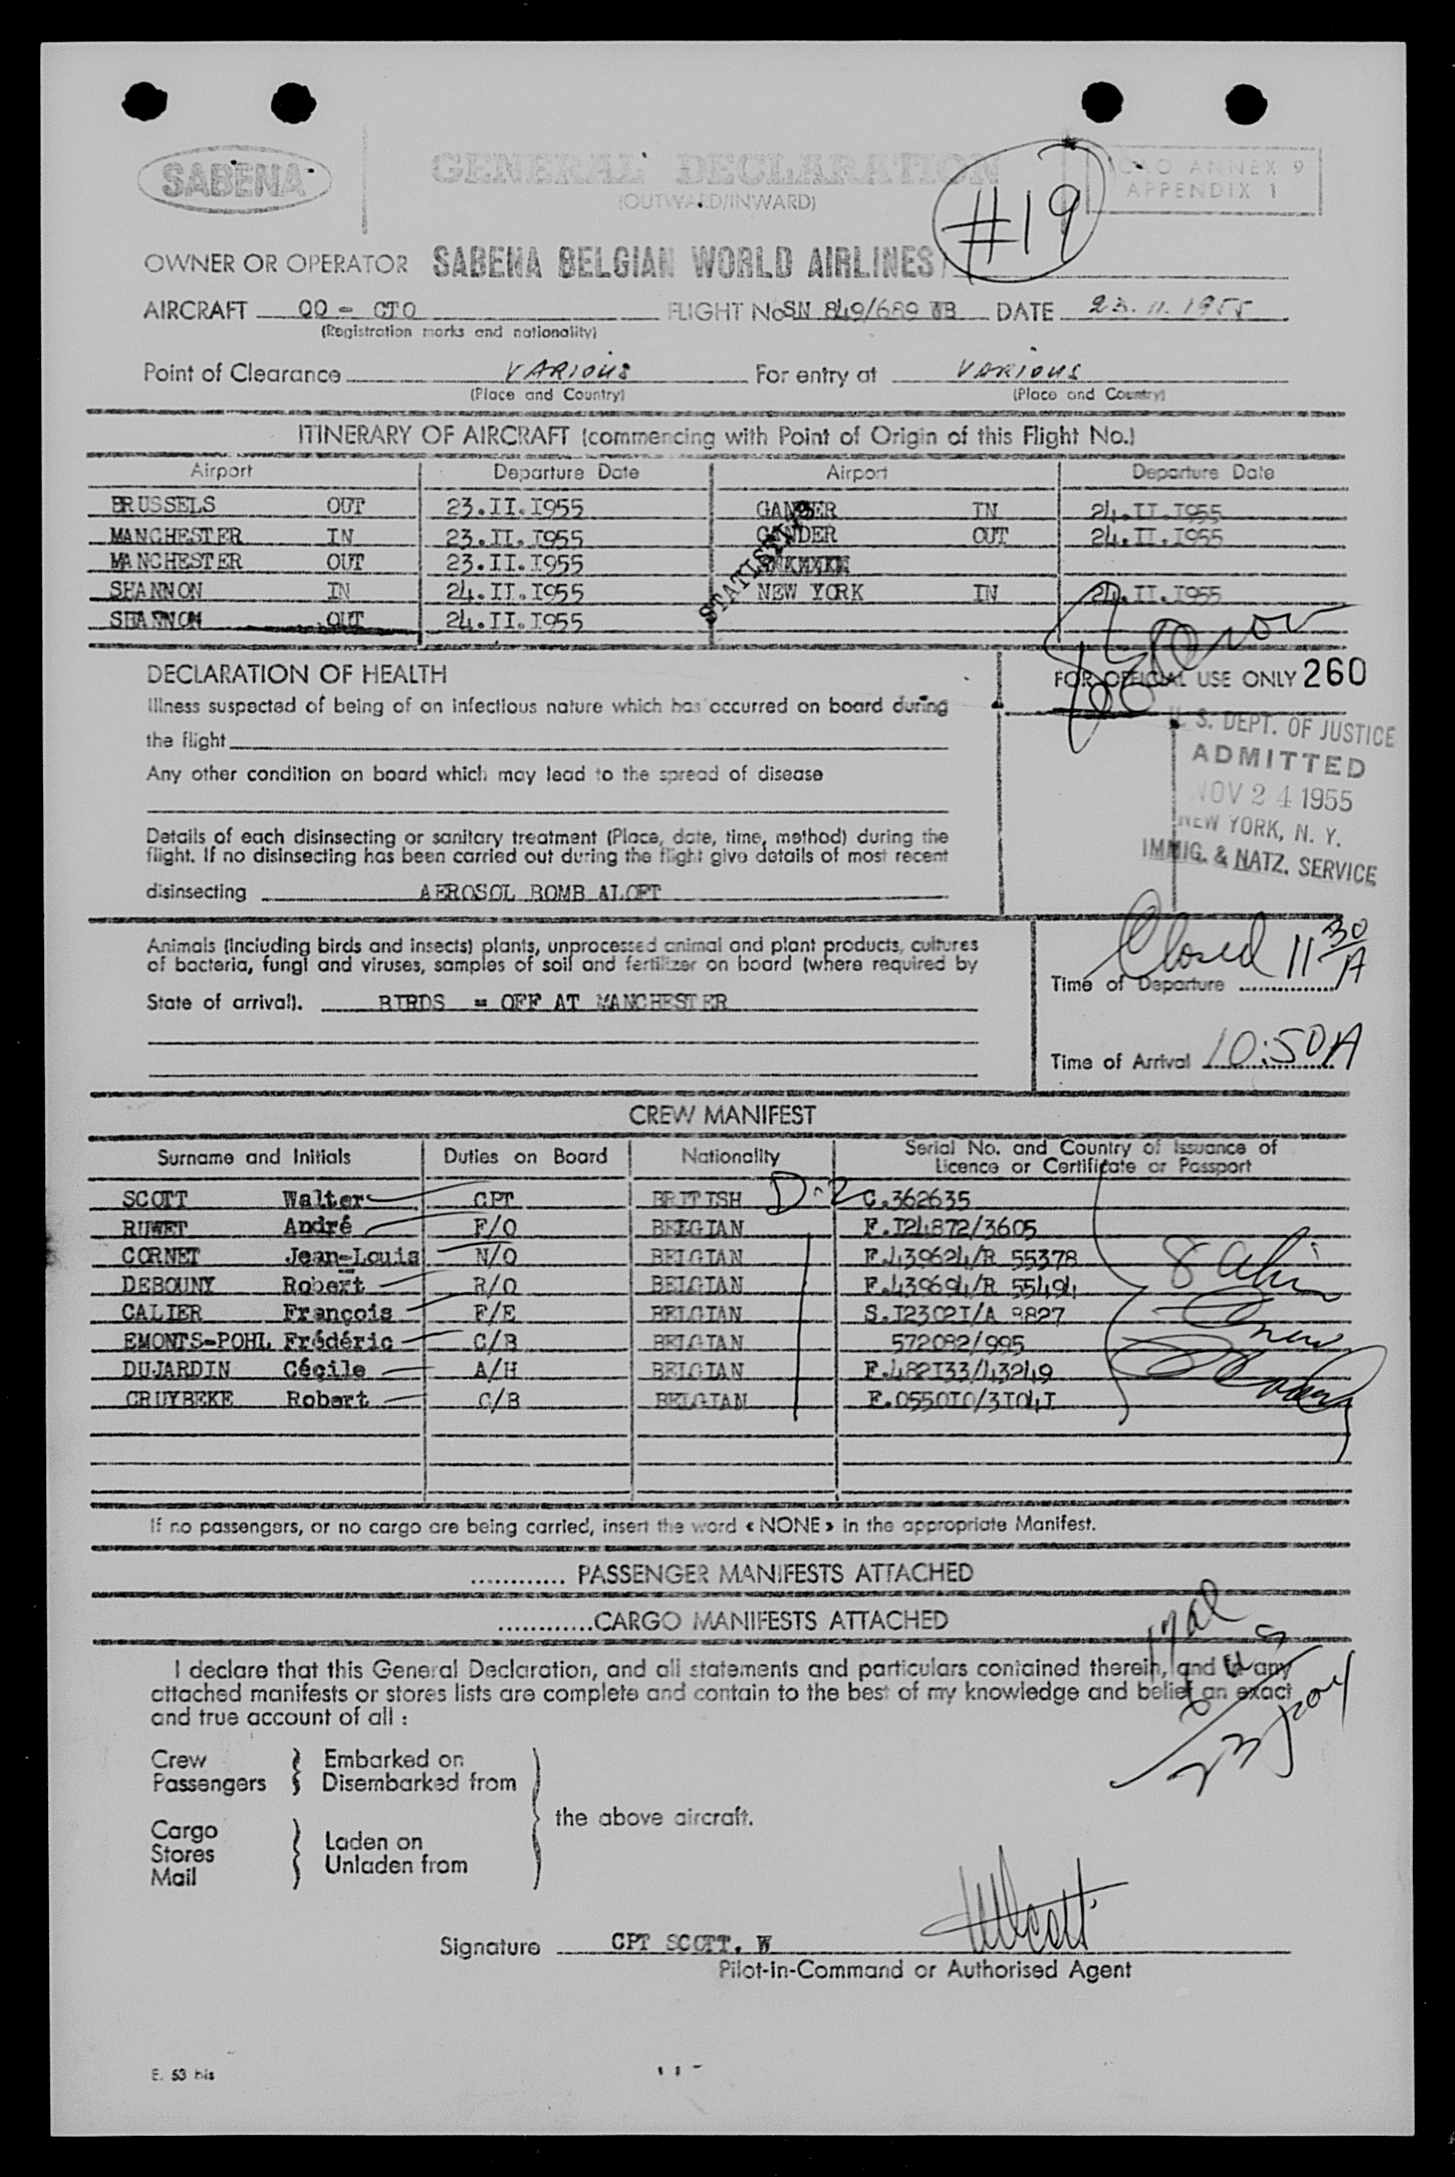 SABENA
GENERAL DECLARATION
(OUTWARD/INWARD)
#19
ICAO ANNEX 9
APPENDIX 1
OWNER OR OPERATOR SABENA BELGIAN WORLD AIRLINES
AIRCRAFT OO - CTO FLIGHT No SN 849/689 WB DATE 23.11.1955
(Registration marks and nationality)
Point of Clearance VARIOUS For entry at VARIOUS
(Place and Country) (Place and Country)
ITINERARY OF AIRCRAFT (commencing with Point of Origin of this Flight No.)
Airport Departure Date Airport Departure Date
BRUSSELS OUT 23.II.I955 GANDER IN 24.II.I955
MANCHESTER IN 23.II.I955 GANDER OUT 24.II.I955
MANCHESTER OUT 23.II.I955
SHANNON IN 24.II.I955 NEW YORK IN 24.II.I955
SHANNON OUT 24.II.I955
DECLARATION OF HEALTH
FOR OFFICIAL USE ONLY 260
Illness suspected of being of an infectious nature which has occurred on board during
the flight
Any other condition on board which may lead to the spread of disease
U. S. DEPT. OF JUSTICE
ADMITTED
NOV 24 1955
NEW YORK, N. Y.
IMMIG. & NATZ. SERVICE
Details of each disinsecting or sanitary treatment (Place, date, time, method) during the
flight. If no disinsecting has been carried out during the flight give details of most recent
disinsecting AEROSOL BOMB ALOFT
Animals (including birds and insects) plants, unprocessed animal and plant products, cultures
of bacteria, fungi and viruses, samples of soil and fertilizer on board (where required by
State of arrival). BIRDS = OFF AT MANCHESTER
Closed 11 30 A
Time of Departure
Time of Arrival 10:50A
CREW MANIFEST
Surname and Initials Duties on Board Nationality Serial No. and Country of Issuance of
Licence or Certificate or Passport
SCOTT Walter CPT BRITISH D-2 C.362635
RUWET André F/O BELGIAN F.I24872/3605
CORNET Jean-Louis N/O BELGIAN F.439624/R 55378
DEBOUNY Robert R/O BELGIAN F.439694/R 55494
CALIER François F/E BELGIAN S.I2302I/A 9827
EMONTS-POHL Frédéric C/B BELGIAN 572082/995
DUJARDIN Cécile A/H BELGIAN F.482I33/43249
CRUYBEKE Robert C/B BELGIAN F.0550I0/3I04I
If no passengers, or no cargo are being carried, insert the word « NONE » in the appropriate Manifest.
............ PASSENGER MANIFESTS ATTACHED
.............CARGO MANIFESTS ATTACHED
I declare that this General Declaration, and all statements and particulars contained therein, and in any
attached manifests or stores lists are complete and contain to the best of my knowledge and belief an exact
and true account of all :
Crew
Passengers
Embarked on
Disembarked from
the above aircraft.
Cargo
Stores
Mail
Laden on
Unladen from
Signature CPT SCOTT. W WScott
Pilot-in-Command or Authorised Agent
E. 53 bis